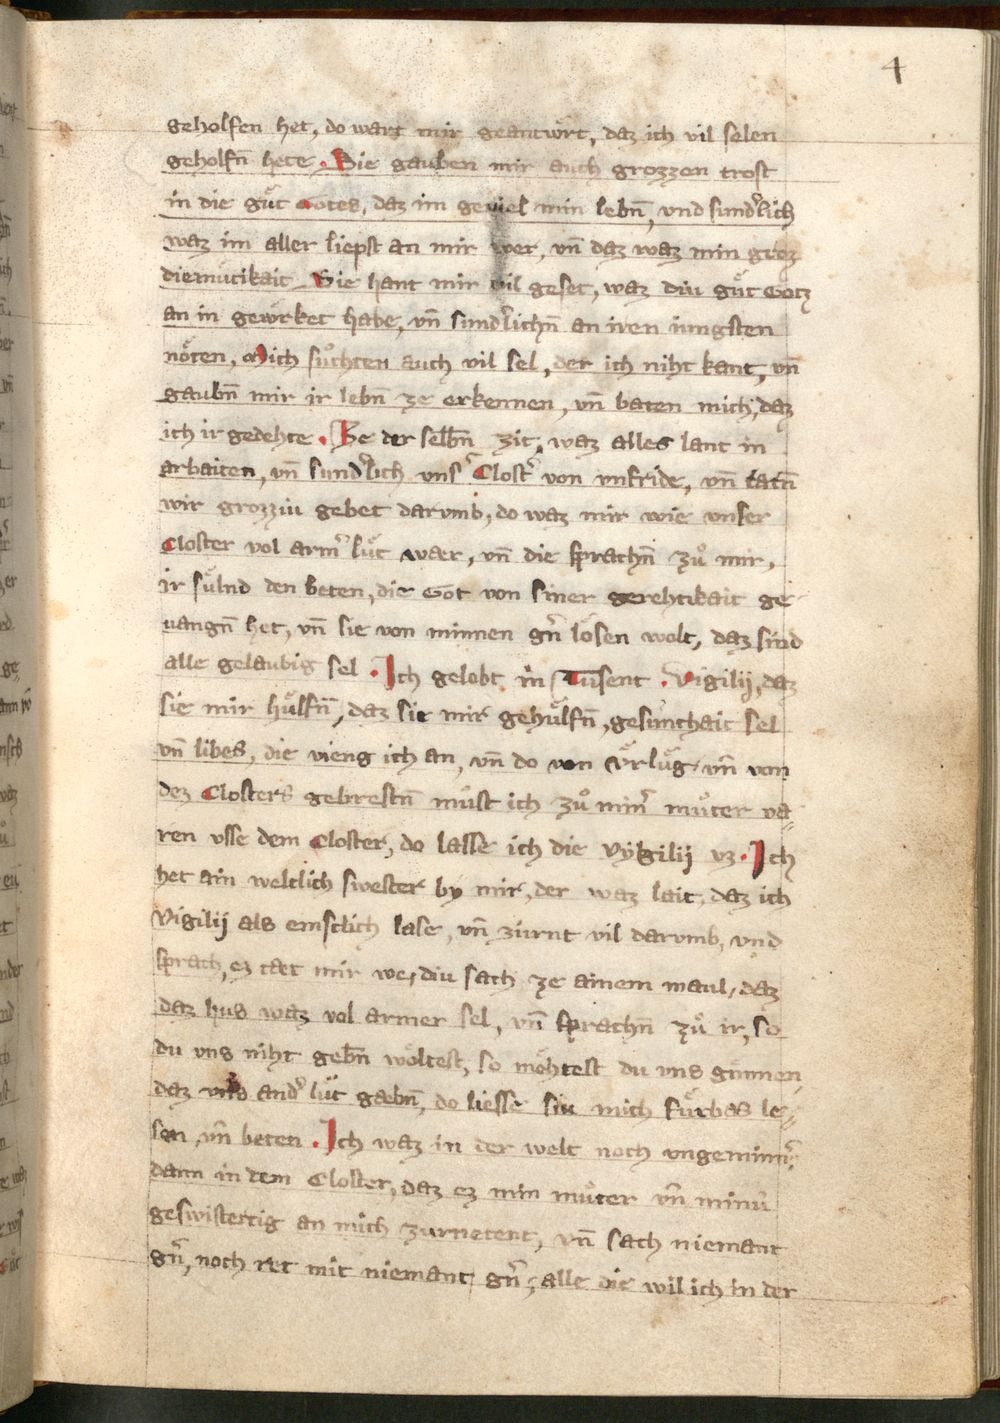 4
geholfen het, do wart mir geantwürt, daz ich vil selen
geholfn̄ hete. Sie gauben mir auch grozzen trost
in die gůt Gotes, daz im geviel min lebn̄, vnd sundˀlich
waz im aller liepst an mir wer, vn̄ daz waz min groz
diemütikait. Sie hant mir vil geset, waz diu gůt Gotz
an in gewürket habe, vn̄ sundˀlichn̄ an iren iungsten
nöten, Mich sůchten auch vil sel, der ich niht kant, vn̄
gaubn̄ mir ir lebn̄ ze erkennen, vn̄ baten mich, daz
ich ir gedehte. Ze der selbn̄ zit, waz alles lant in
arbaiten, vn̄ sundˀlich vnsˀ Clostˀ von vnfride, vn̄ tatn̄
wir grozziu gebet darvmb, do waz mir wie vnser
Closter vol armˀ lüt waer, vn̄ die sprachn̄ zů mir,
ir sülnd den beten, die Got von siner gerehtikait ge
uangn̄ het, vn̄ sie von minnen gˀn lösen wolt, daz sind
alle gelaubig sel. Ich gelobt in Tusent. Vigilij, daz
sie mir hülfn̄, daz sie mir gehülfn̄, gesunthait sel
vn̄ libes, die vieng ich an, vn̄ do von vrlüg, vn̄ von
dez Closters gebrestn̄ můst ich zů minˀ můter va⸗
ren vsse dem Closter, do lasse ich die Vygilij vz. Ich
het ain weltlich swester by mir, der waz lait, daz ich
Vigilij als emstlich lase, vn̄ zurnt vil darvmb, vnd
sprach, ez taet mir we, diu sach ze ainem maul, daz
daz hus waz vol armer sel, vn̄ sprachn̄ zů ir, so
du vns niht gebn̄ wöltest, so möhtest du vns gunnen,
daz vns andˀ lüt gaebn̄, do liesse siu mich fürbas le⸗
sen vn̄ beten. Ich waz in der welt noch vngeminnˀ,
dann in dem Closter, daz ez min můter vn̄ miniu
geswistertig an mich zurnetent, vn̄ sach niemant
gˀn, noch ret mit niemant gˀn, alle die wil ich in der